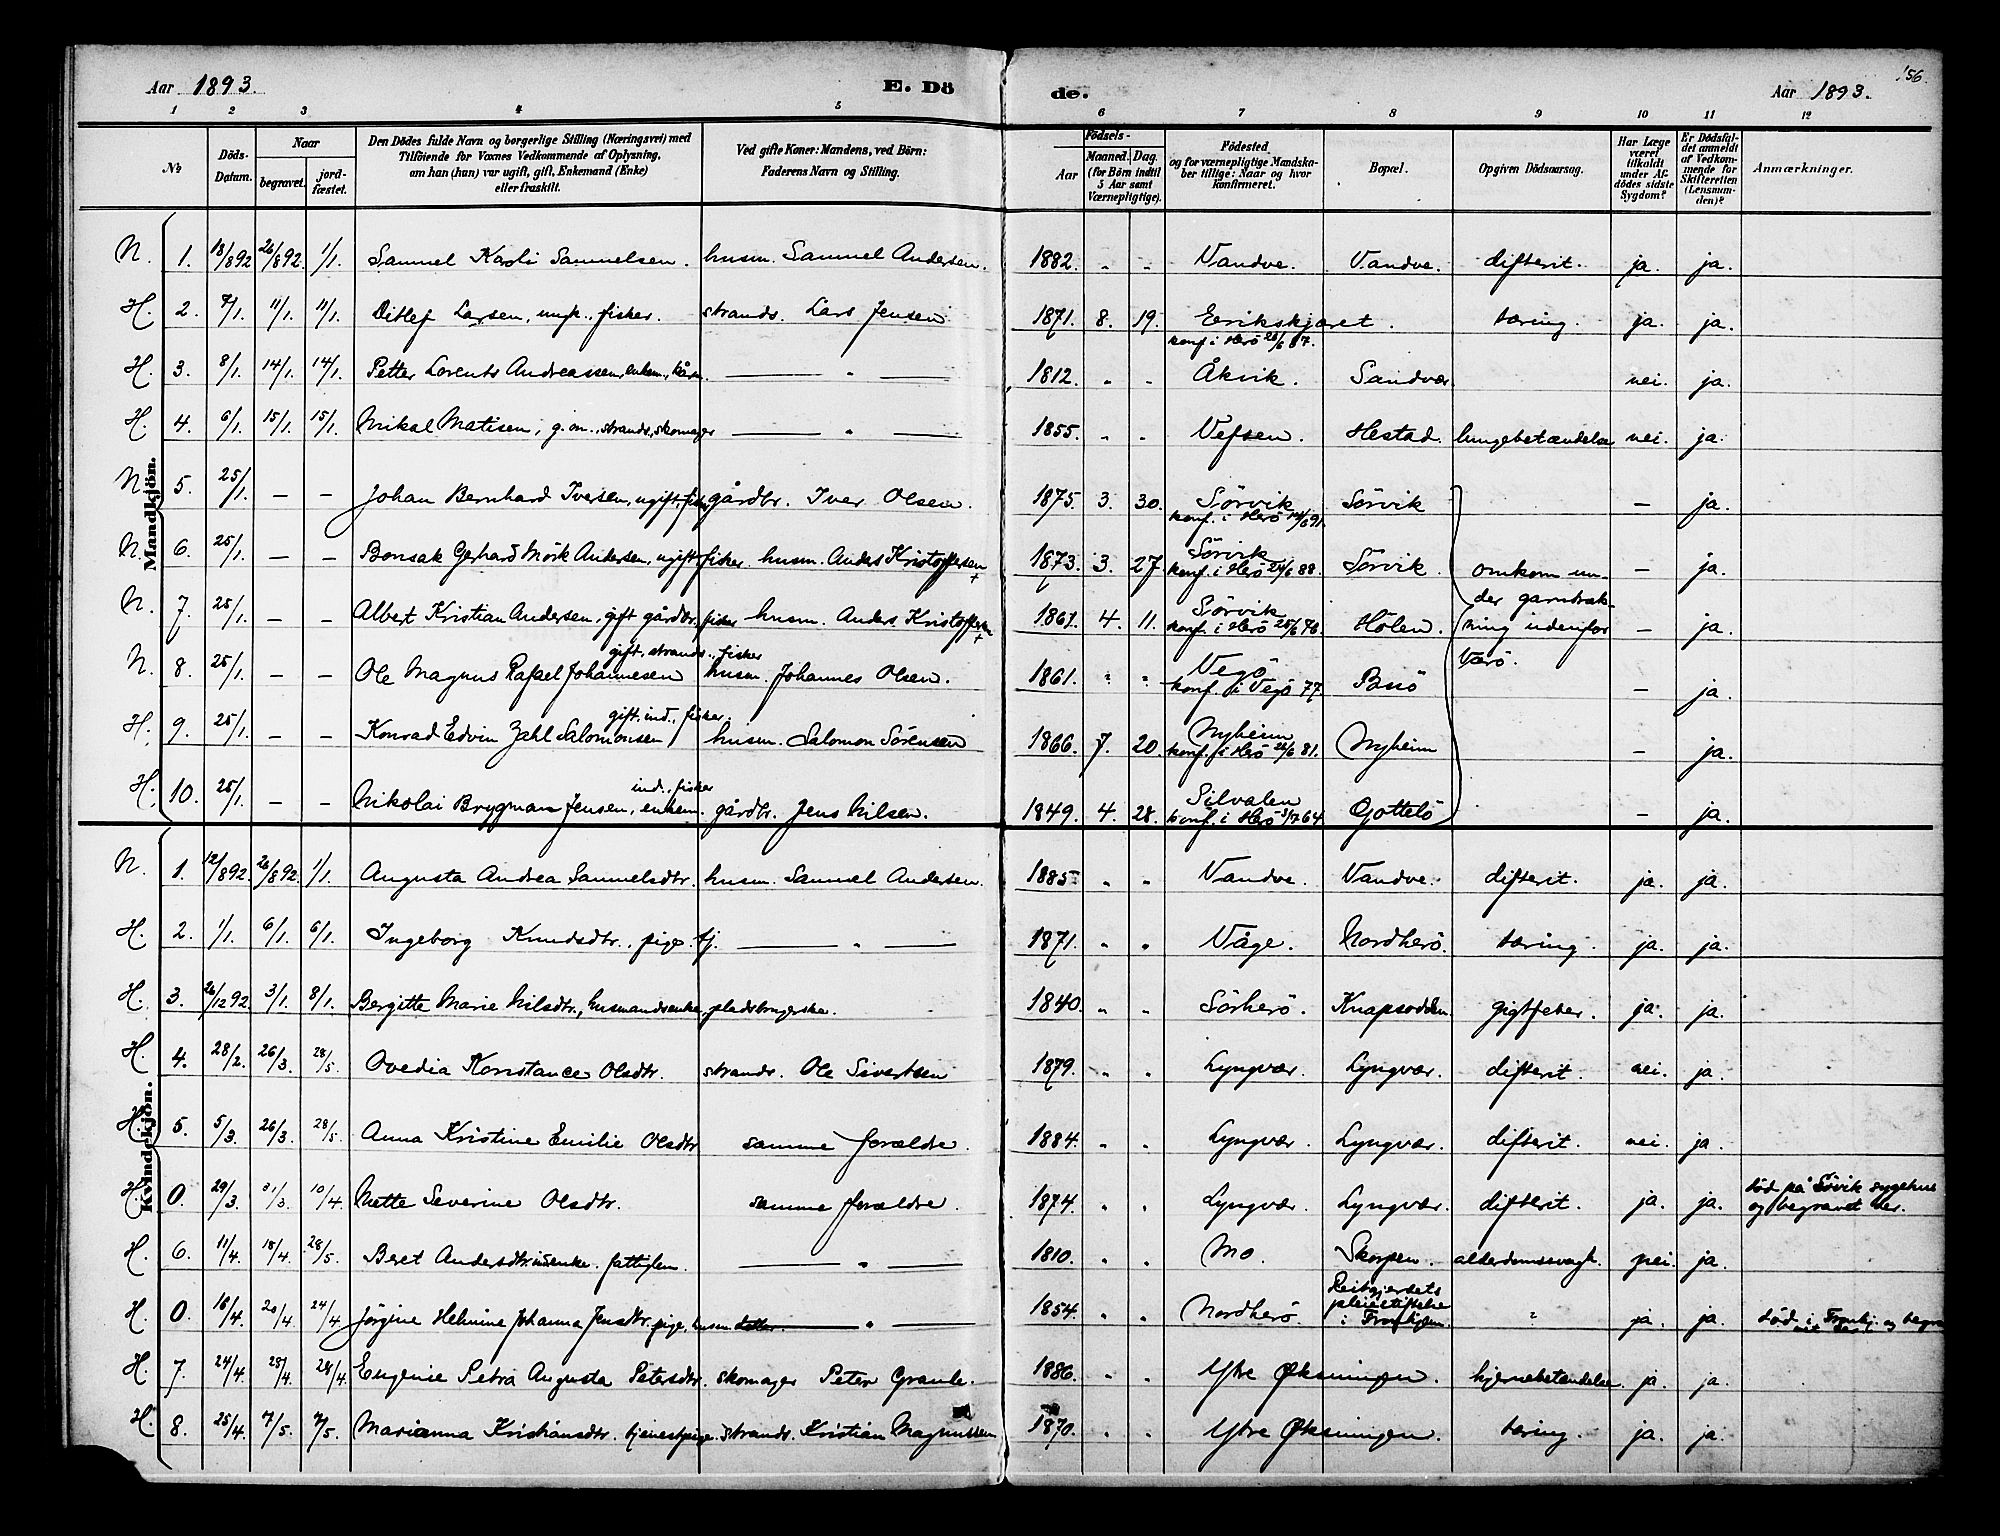 156
Aar 1893. E. Dö de. Aar 1893.
1 2 3 4 5 6 7 8 9 10 11 12
No
Döds-Datum.
Naar
begravet.
jord-fæstet.
Den Dödes fulde Navn og borgerlige Stilling (Næringsvei) med
Tilföiende for Voxnes Vedkommende af Oplysning,
om han (hun) var ugift, gift, Enkemand (Enke)
eller fraskilt.
Ved gifte Koner: Mandens, ved Börn:
Faderens Navn og Stilling.
Födsels-
Aar
Maaned. Dag.
(for Börn indtil
5 Aar samt
Værnepligtige).
Födested
og for værnepligtige Mandska-
ber tillige: Naar og hvor
konfirmeret.
Bopæl.
Opgiven Dödsaarsag.
Har Læge
været
tilkaldt
under Af-
dödes sidste
Sygdom?
Er Dödsfal-
det anmeldt
af Vedkom-
mende for
Skifteretten
(Lensman-
den)?
Anmærkninger.
Mandkjön.
N. 1. 18/892 26/892. 1/1. Samuel Karli Samuelsen. husm. Samuel Andersen. 1882. " " Vandve. Vandve. difterit. ja. ja.
H. 2. 7/1. 11/1. 11/1. Ditlef Larsen, ungk., fisker. strands. Lars Jensen 1871. 8. 19. Erikskjæret. tæring. ja. ja.
konf. i Herö 26/6 87.
H. 3. 8/1. 14/1. 14/1. Petter Lorents Andreassen, enkem., kårm. — " — 1812. " " Åkvik. Sandvær nei. ja.
H. 4. 6/1. 15/1. 15/1. Mikal Matisen, g.m., strands., skomager — " — 1855. " " Vefsen. Hestad. lungebetændelse nei. ja.
N. 5. 25/1. — — Johan Bernhard Iversen, ugift, fisker gårdbr. Iver Olsen. 1875. 3. 30. Sörvik Sörvik — ja.
konf. i Herö 14/6 91.
N. 6. 25/1. — — Bonsak Gerhard Mörk Andersen, ugift fisker husm. Anders Kristoffersen + 1873. 3. 27. Sörvik Sörvik. omkom un- — ja.
konf. i Herö 24/6 88.
der garntræk-
N. 7. 25/1. — — Albert Kristian Andersen, gift gårdbr. fisker husm. Anders Kristoffersen + 1861. 4. 11. Sörvik Hölen. ning udenfor — ja.
konf. i Herö 25/6 76.
gift, strands., fisker
N. 8. 25/1. — — Ole Magnus Rafael Johannesen husm. Johannes Olsen. 1861. " " Vegö Værö. — ja.
konf. i Vegö 77.
gift, ind., fisker.
H. 9. 25/1. — — Konrad Edvin Zahl Salomonsen husm. Salomon Sörensen 1866. 7. 20. Nyheim Nyheim — ja.
konf. i Herö 26/6 81.
ind., fisker
H. 10. 25/1. — — Nikolai Brygman Jensen, enkem. gårdbr. Jens Nilsen. 1849. 4. 28. Silvalen Gottelö — ja.
konf. i Herö 3/7 64
Kvindekjön.
N. 1. 12/892. 26/892. 1/1. Augusta Andrea Samuelsdtr. husm. Samuel Andersen. 1885 " " Vandve. Vandve. difterit. ja. ja.
H. 2. 1/1. 6/1. 6/1. Ingeborg Knudsdtr., pige. tj. — " — 1871. " " Våge. Nordherö. tæring. ja. ja.
H. 3. 26/12 92. 3/1. 8/1. Bergitte Marie Nilsdtr., husmandsenke, pladsbrugerske. 1840. " " Sörherö. Knapsodden gigtfeber. ja. ja.
H. 4. 28/2. 26/3. 28/5. Ovedia Konstance Olsdtr. strands. Ole Sivertsen 1879. " " Lyngvær. Lyngvær. difterit. nei. ja.
H. 5. 5/3. 26/3. 28/5. Anna Kristine Emilie Olsdtr samme forældre. 1884. " " Lyngvær. Lyngvær. difterit. nei. ja.
H. 0. 29/3. 31/3. 10/4. Mette Severine Olsdtr. samme forældre. 1874. " " Lyngvær. Lyngvær. difterit. ja. ja. död på Sövik sygehus
og begravet der.
H. 6. 11/4. 18/4. 28/5. Beret Andersdtr. indenke. fattiglem. — " — 1810. " " Mo. Skorpen. alderdomssvagh. nei. ja.
H. 0. 16/4. 20/4. 24/4 Jörgine Helmine Johanna Jensdtr. pige, husm datter. — " — 1854. " " Nordherö Reitgjerdets
pleiestiftelse
i Tronhjem " ja. ja. död i Tronhj. og begra-
vet der.
H. 7. 24/4. 28/4. 28/4. Eugenie Petra Augusta Petersdtr. skomager Peter Granle. 1886. " " Ytre Øksningen. hjernebetændelse. ja. ja.
H. 8. 25/4. 7/5. 7/5. Marianna Kristiansdtr. tjenestpige. strands. Kristian Magnussen 1870. " " Ytre Øksningen. tæring. ja. ja.